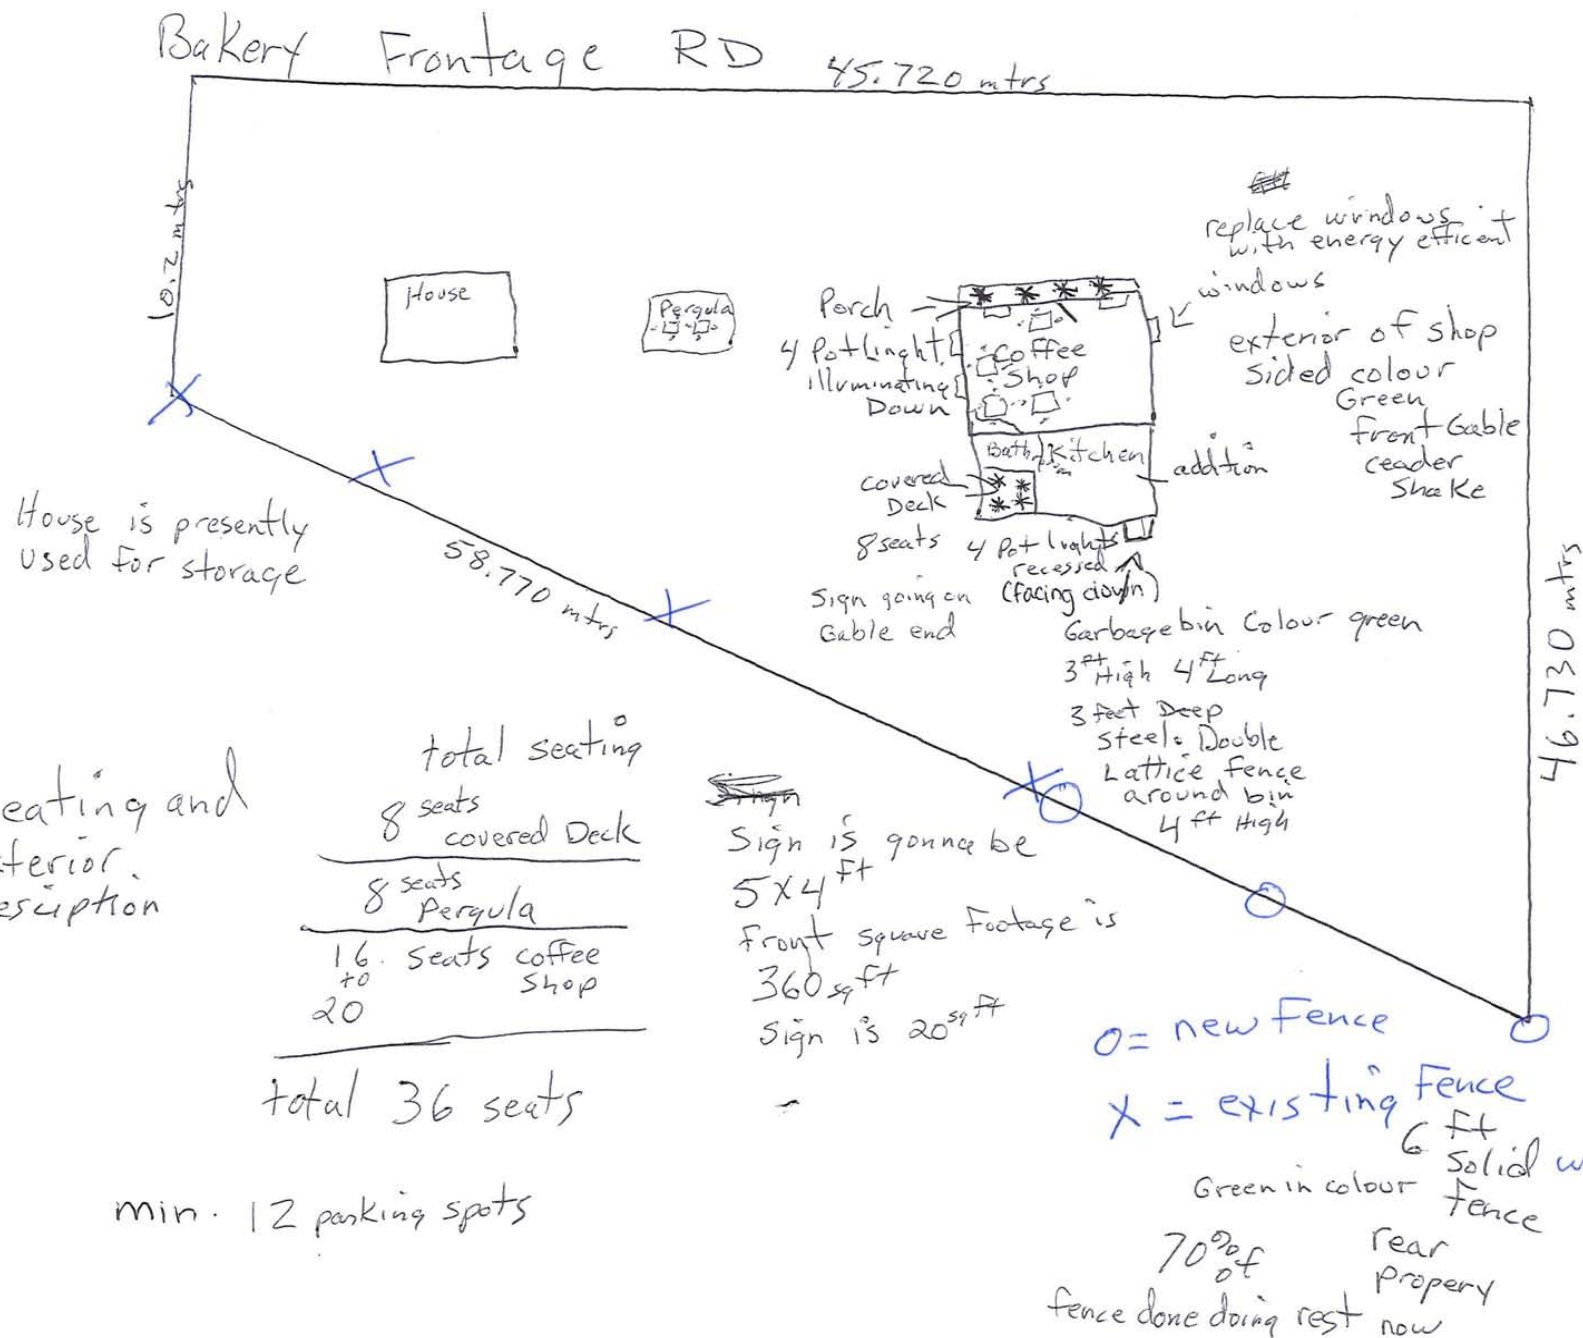 Bakery Frontage RD
45.720 mtrs
10.2 mtrs
House
Pergula
Porch
4 Potlinght
illuminating
Down
Coffee
Shop
Bath
Kitchen
covered
Deck
8 seats
4 Pot lights
recessed
(facing down)
addition
replace windows
with energy efficent
windows
exterior of shop
Sided colour
Green
front Gable
ceader
Shake
Sign going on
Gable end
Garbage bin Colour green
3 ft High 4 ft Long
3 feet Deep
Steel. Double
Lattice fence
around bin
4 ft High
46.730 mtrs
House is presently
used for storage
58.770 mtrs
eating and
terior.
esciption
total seating
8 seats
covered Deck
8 seats
Pergula
16 seats coffee
to Shop
20
total 36 seats
min. 12 parking spots
Sign is gonna be
5x4 ft
front square footage is
360 sq ft
Sign is 20 sq ft
O= new Fence
X = existing Fence
6 ft
Solid w
Green in colour fence
70% of rear
propery
fence done doing rest now